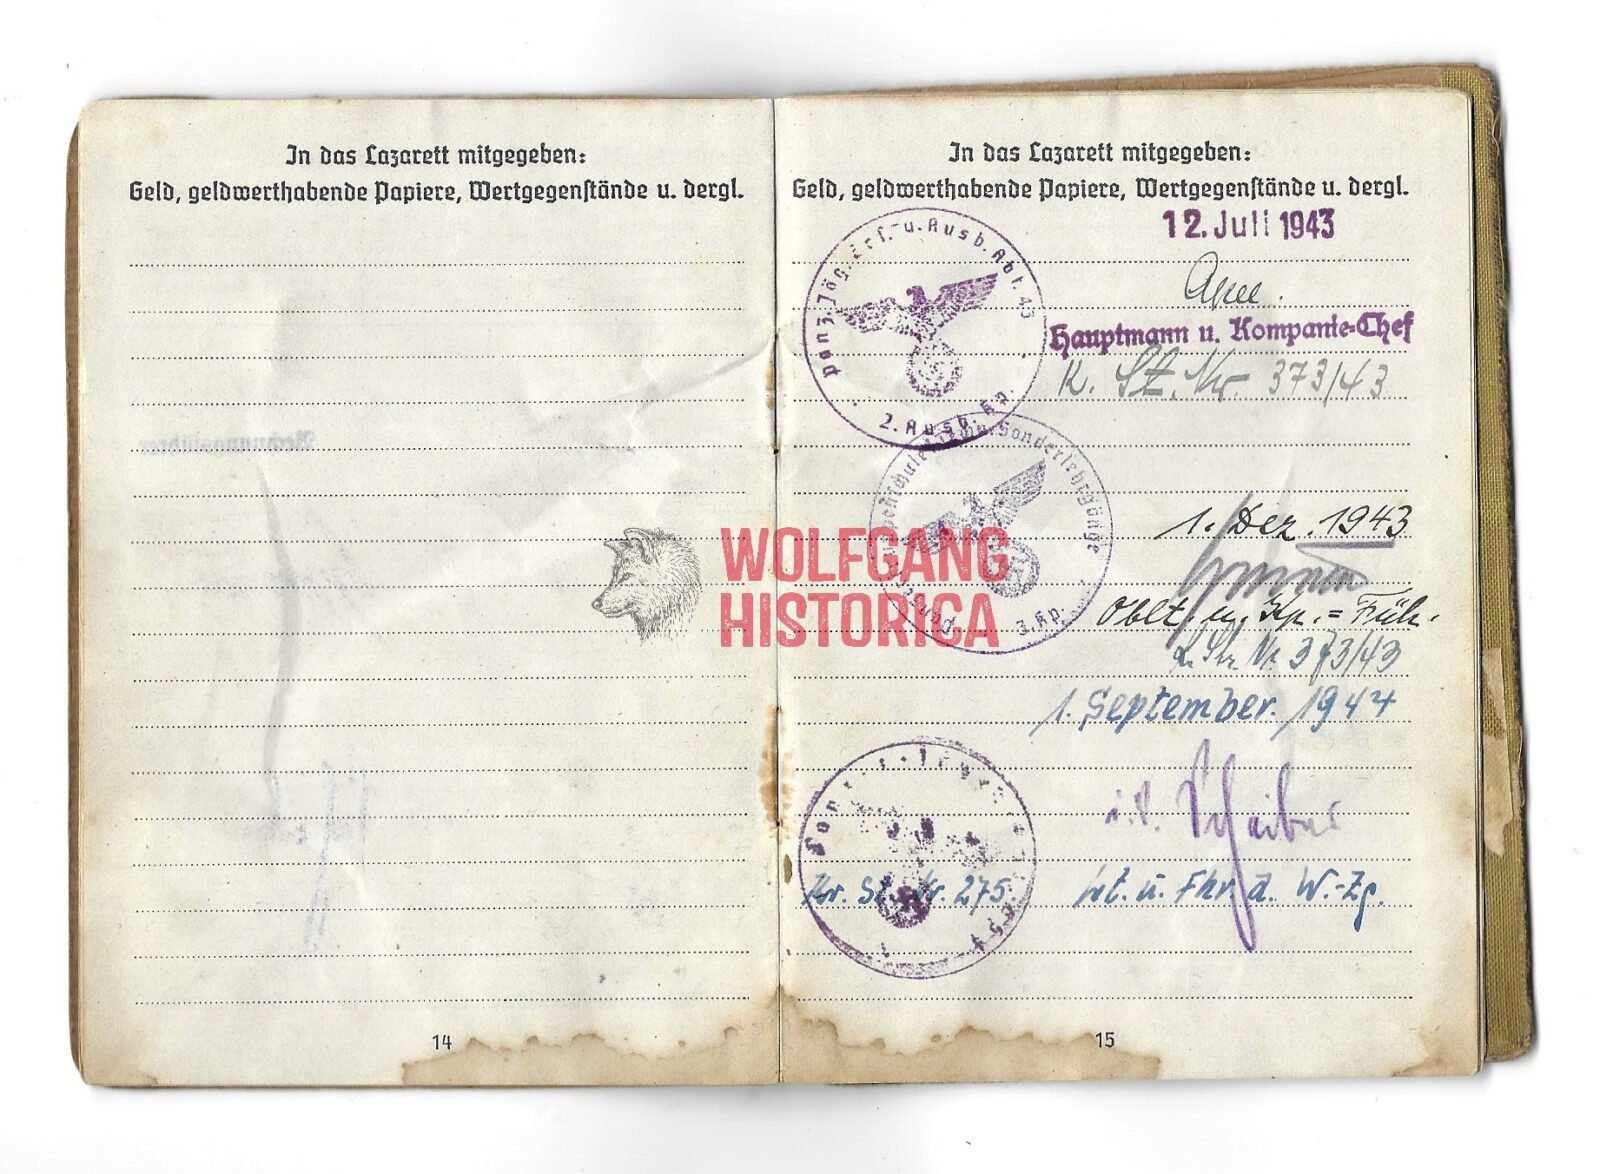 In das Lazarett mitgegeben:
Geld, geldwerthabende Papiere, Wertgegenstände u. dergl.
Rechnungsführer
14
In das Lazarett mitgegeben:
Geld, geldwerthabende Papiere, Wertgegenstände u. dergl.
12. Juli 1943
Panz.Jäg.Ers.-u.Ausb.Abt.43
2. Ausb. Kp.
Hauptmann u. Kompanie-Chef
K. St. Nr. 373/43
Sonderlehrgänge
3. Kp.
1. Dez. 1943
Oblt. u. Kp. = Füh.
Nr 373/43
1. September. 1944
Kr. St. Nr. 275
Lt. u. Fhr. d. W.-Zg.
15
WOLFGANG
HISTORICA